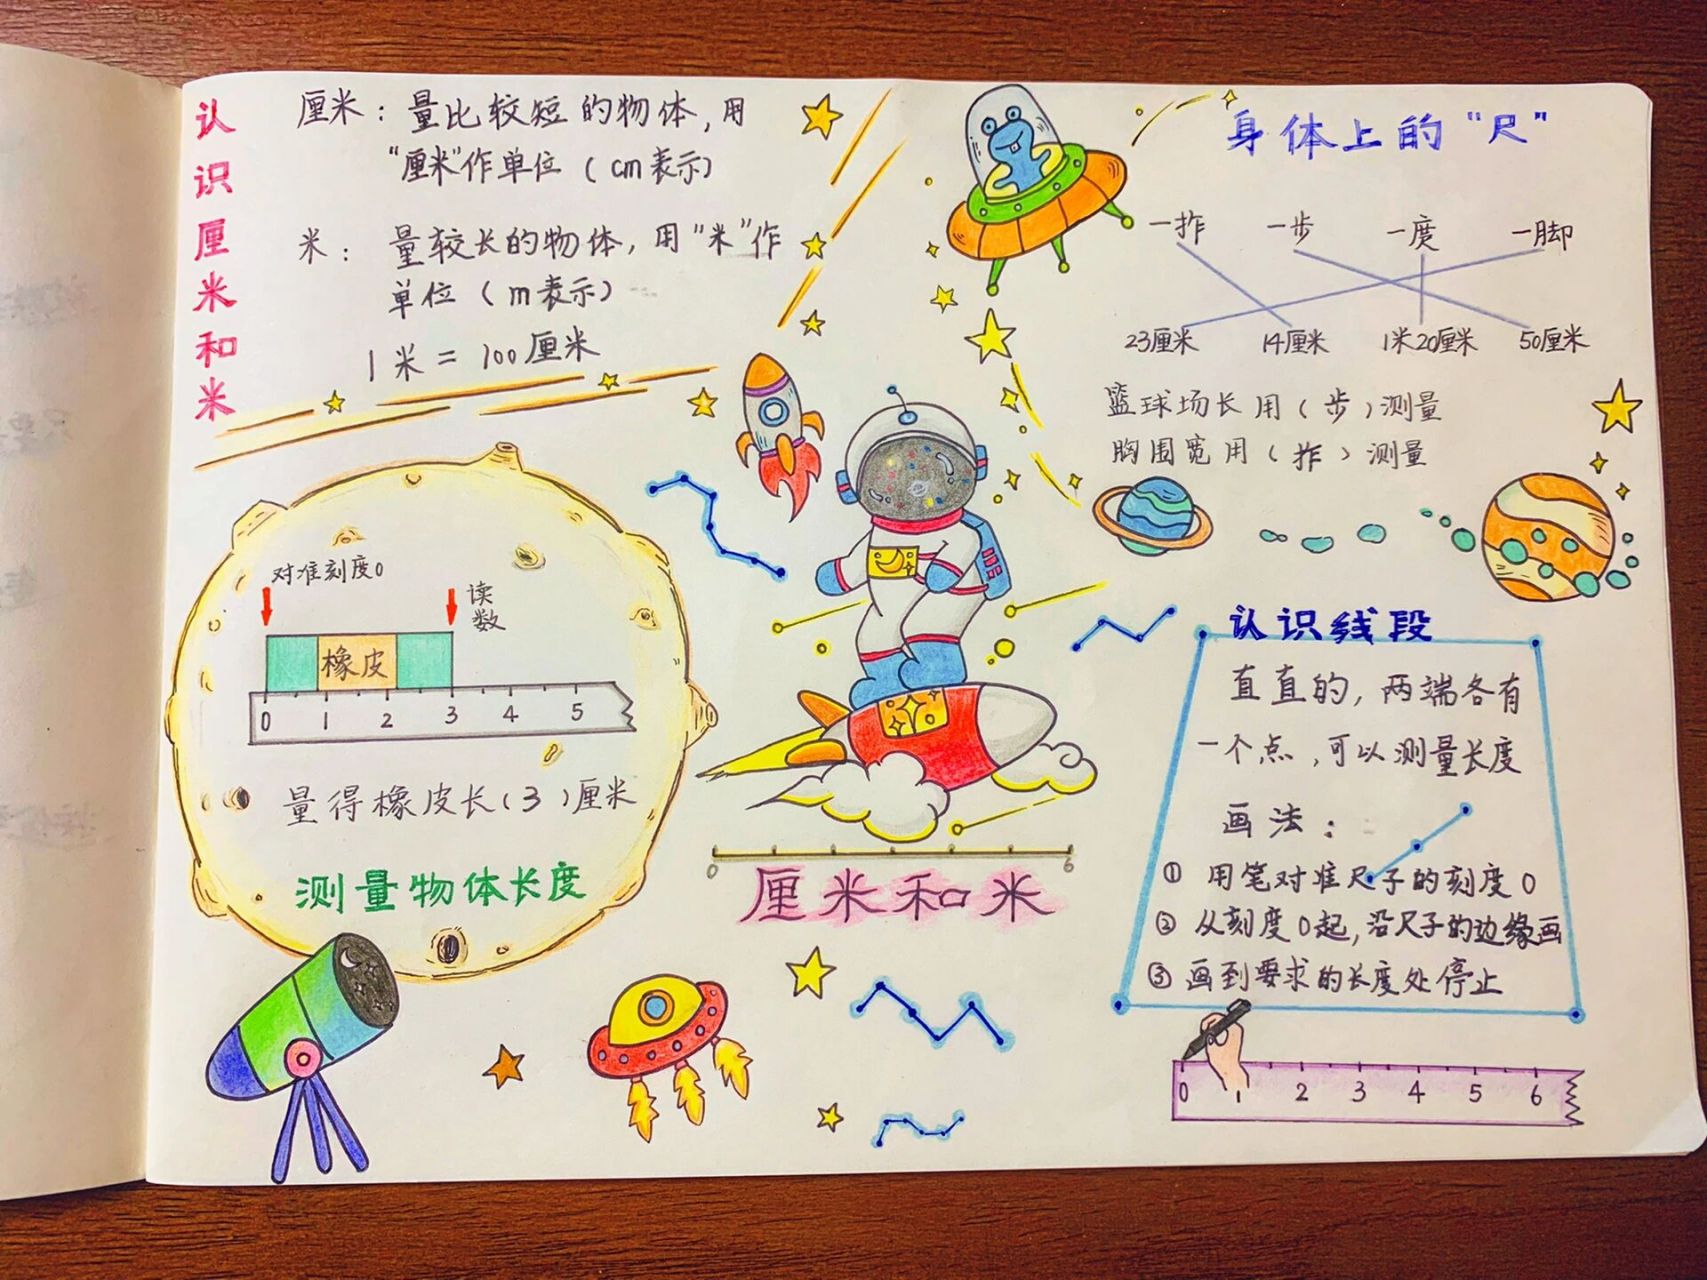 认识厘米和米
厘米：量比较短的物体，用
“厘米”作单位（cm表示）
米：量较长的物体，用“米”作
单位（m表示）
1米=100厘米
身体上的“尺”
一拃 一步 一庹 一脚
23厘米 14厘米 1米20厘米 50厘米
篮球场长用（步）测量
胸围宽用（拃）测量
对准刻度0
读数
橡皮
0 1 2 3 4 5
量得橡皮长（3）厘米
测量物体长度
0 6
厘米和米
认识线段
直直的，两端各有
一个点，可以测量长度
画法：
① 用笔对准尺子的刻度0
② 从刻度0起，沿尺子的边缘画
③ 画到要求的长度处停止
0 1 2 3 4 5 6